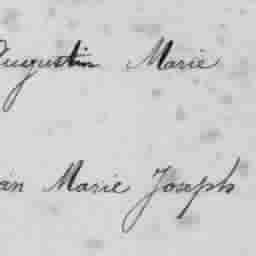 Augustin Marie
an Marie Joseph